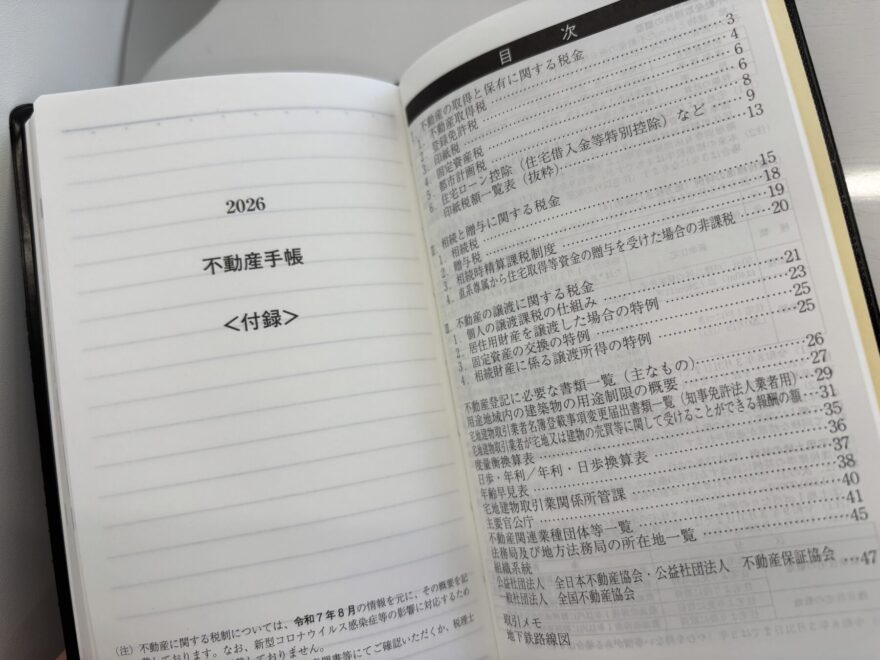 2026
不動産手帳
<付録>
(注) 不動産に関する税制については、令和7年8月の情報を元に、その概要を記
載しております。なお、新型コロナウイルス感染症等の影響に対応するため
載しておりません。
にてご確認いただくか、税理士
目 次
不動産の取得と保有に関する税金
1. 不動産取得税 …… 3
2. 登録免許税 …… 4
3. 印紙税 …… 6
4. 固定資産税 …… 6
5. 都市計画税 …… 8
6. 住宅ローン控除(住宅借入金等特別控除)など …… 9
印紙税額一覧表(抜粋) …… 13
Ⅱ. 相続と贈与に関する税金
1. 相続税 …… 15
2. 贈与税 …… 18
3. 相続時精算課税制度 …… 19
4. 直系尊属から住宅取得等資金の贈与を受けた場合の非課税 …… 20
Ⅲ. 不動産の譲渡に関する税金
1. 個人の譲渡課税の仕組み …… 21
2. 居住用財産を譲渡した場合の特例 …… 23
3. 固定資産の交換の特例 …… 25
4. 相続財産に係る譲渡所得の特例 …… 25
不動産登記に必要な書類一覧(主なもの) …… 26
用途地域内の建築物の用途制限の概要 …… 27
宅地建物取引業者名簿登載事項変更届出書類一覧(知事免許法人業者用) …… 29
宅地建物取引業者が宅地又は建物の売買等に関して受けることができる報酬の額 … 31
度量衡換算表 …… 35
日歩・年利/年利・日歩換算表 …… 36
年齢早見表 …… 37
宅地建物取引業関係所管課 …… 38
主要官公庁 …… 40
不動産関連業種団体等一覧 …… 41
法務局及び地方法務局の所在地一覧 …… 45
組織系統
公益社団法人 全日本不動産協会・公益社団法人 不動産保証協会 … 47
一般社団法人 全国不動産協会
取引メモ
地下鉄路線図